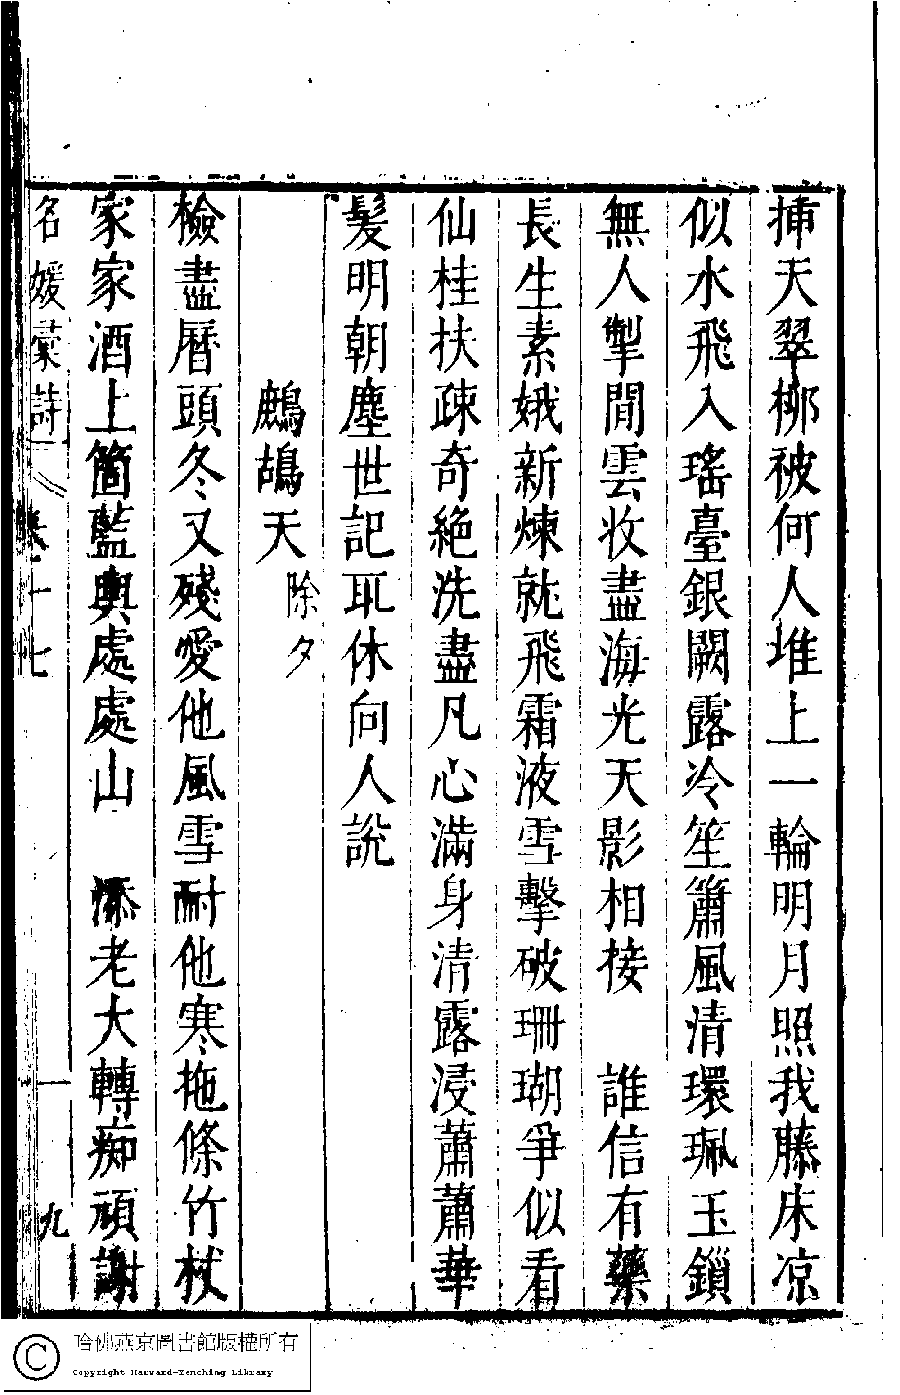 揷天翠栁被何人堆上一輪明月照我藤床凉
似水飛入瑤臺銀闕露冷笙簫風清環珮玉鎖
無人掣閒雲收盡海光天影相接　誰信有藥
長生素娥新煉就飛霜液雪擊破珊瑚爭似看
仙桂扶疎奇絕洗盡凡心滿身清露浸蕭蕭華
髮明朝塵世記耴休向人說
鷓鴣天 除夕
檢盡曆頭冬又殘愛他風雪耐他寒拖條竹杖
家家酒上箇藍輿處處山　添老大轉痴頑謝
名媛彙詩 卷十七 九
哈佛燕京圖書館版權所有
Copyright Harvard-Yenching Library